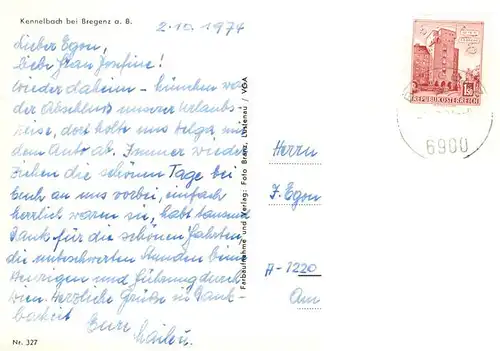 Kennelbach bei Bregenz a. B.
2.10.1974
Lieber Egon,
liebe Frau Josefine!
Wieder daheim - München war
der Abschluß unserer Urlaubs-
reise, dort holte uns Helga mit
dem Auto ab. Immer wieder
ziehen die schönen Tage bei
Euch an uns vorbei, einfach
herrlich waren sie, habt tausend
Dank für die schönen Fahrten
die unbeschwerten Stunden beim
Heurigen und Führung durch
Wien. Herzliche Grüße in Dank-
barkeit
Eure
Nr. 327
Farbaufnahme und Verlag: Foto Branz, Lustenau / VGA
REPUBLIK ÖSTERREICH
6900
Herrn
J. Egon
A-1220
Am